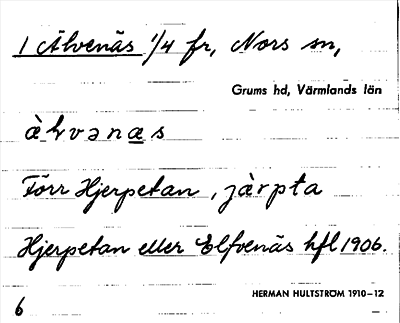 1 Älvenäs 1/4 fr, Nors sn,
Grums hd, Värmlands län
àḷvənas
Förr Hjerpetan, jàrpta
Hjerpetan eller Elfvenäs hfl 1906.
HERMAN HULTSTRÖM 1910–12
6